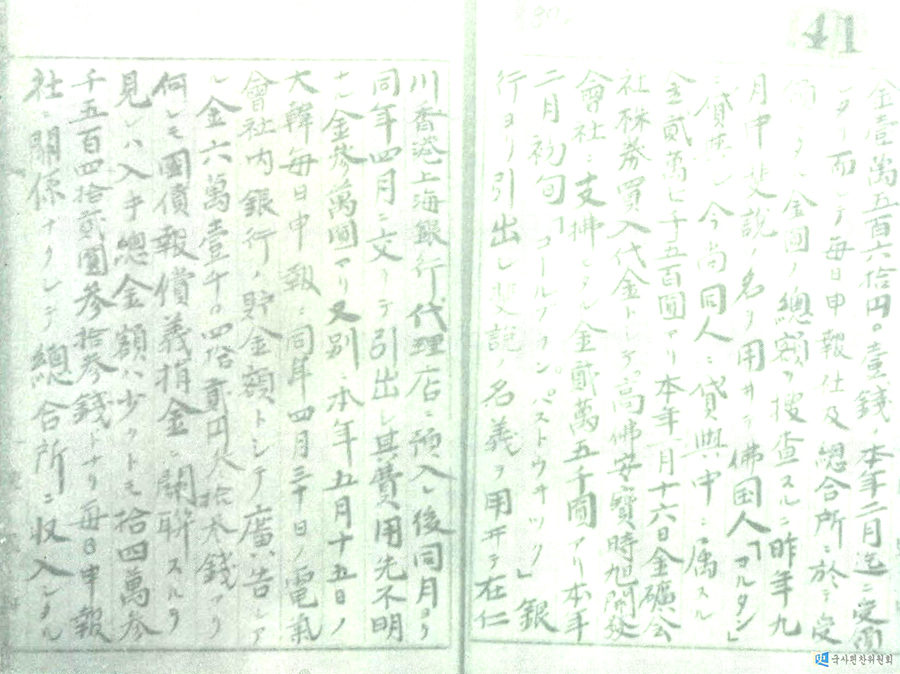 41
金壹萬五百六拾円〇壹錢ノ本年二月迄ニ受領
シタリ而シテ毎日申報社及總合所ニ於テ受
領シタル金圓ノ總額ヲ搜査スルニ昨年九
月中斐説ノ名ヲ用ヰテ佛国人「マルタン」
ニ貸與シ今尚同人ニ貸與中ニ属スル
金貳萬七千五百圓アリ本年一月十六日金礦公
社株券買入代金トシテ高佛安寶時旭開發
會社ニ支拂シタル金貳萬五千圓アリ本年
二月初旬「コールブラン、バストウ井ツク」銀
行ヨリ引出シ斐説ノ名義ヲ用ヰテ在仁
川香港上海銀行代理店ニ預入レ後同月ヨリ
同年四月ニ亥リテ引出シ其費用先不明
ナル金參萬圓アリ又別ニ本年五月十五日ノ
大韓每日申報ニ同年四月三十日ノ電氣
會社内銀行ノ貯金額トシテ廣告シア
ル金六萬壹千〇四拾貳円六拾六錢アリ
何レモ國債報償義捐金ニ關聯スルヲ
見レハ入手總金額ハ少クトモ拾四萬參
千五百四拾貳圓參拾參錢トナリ每日申報
社ニ關係ナクシテ總合所ニ收入シタル
국사편찬위원회